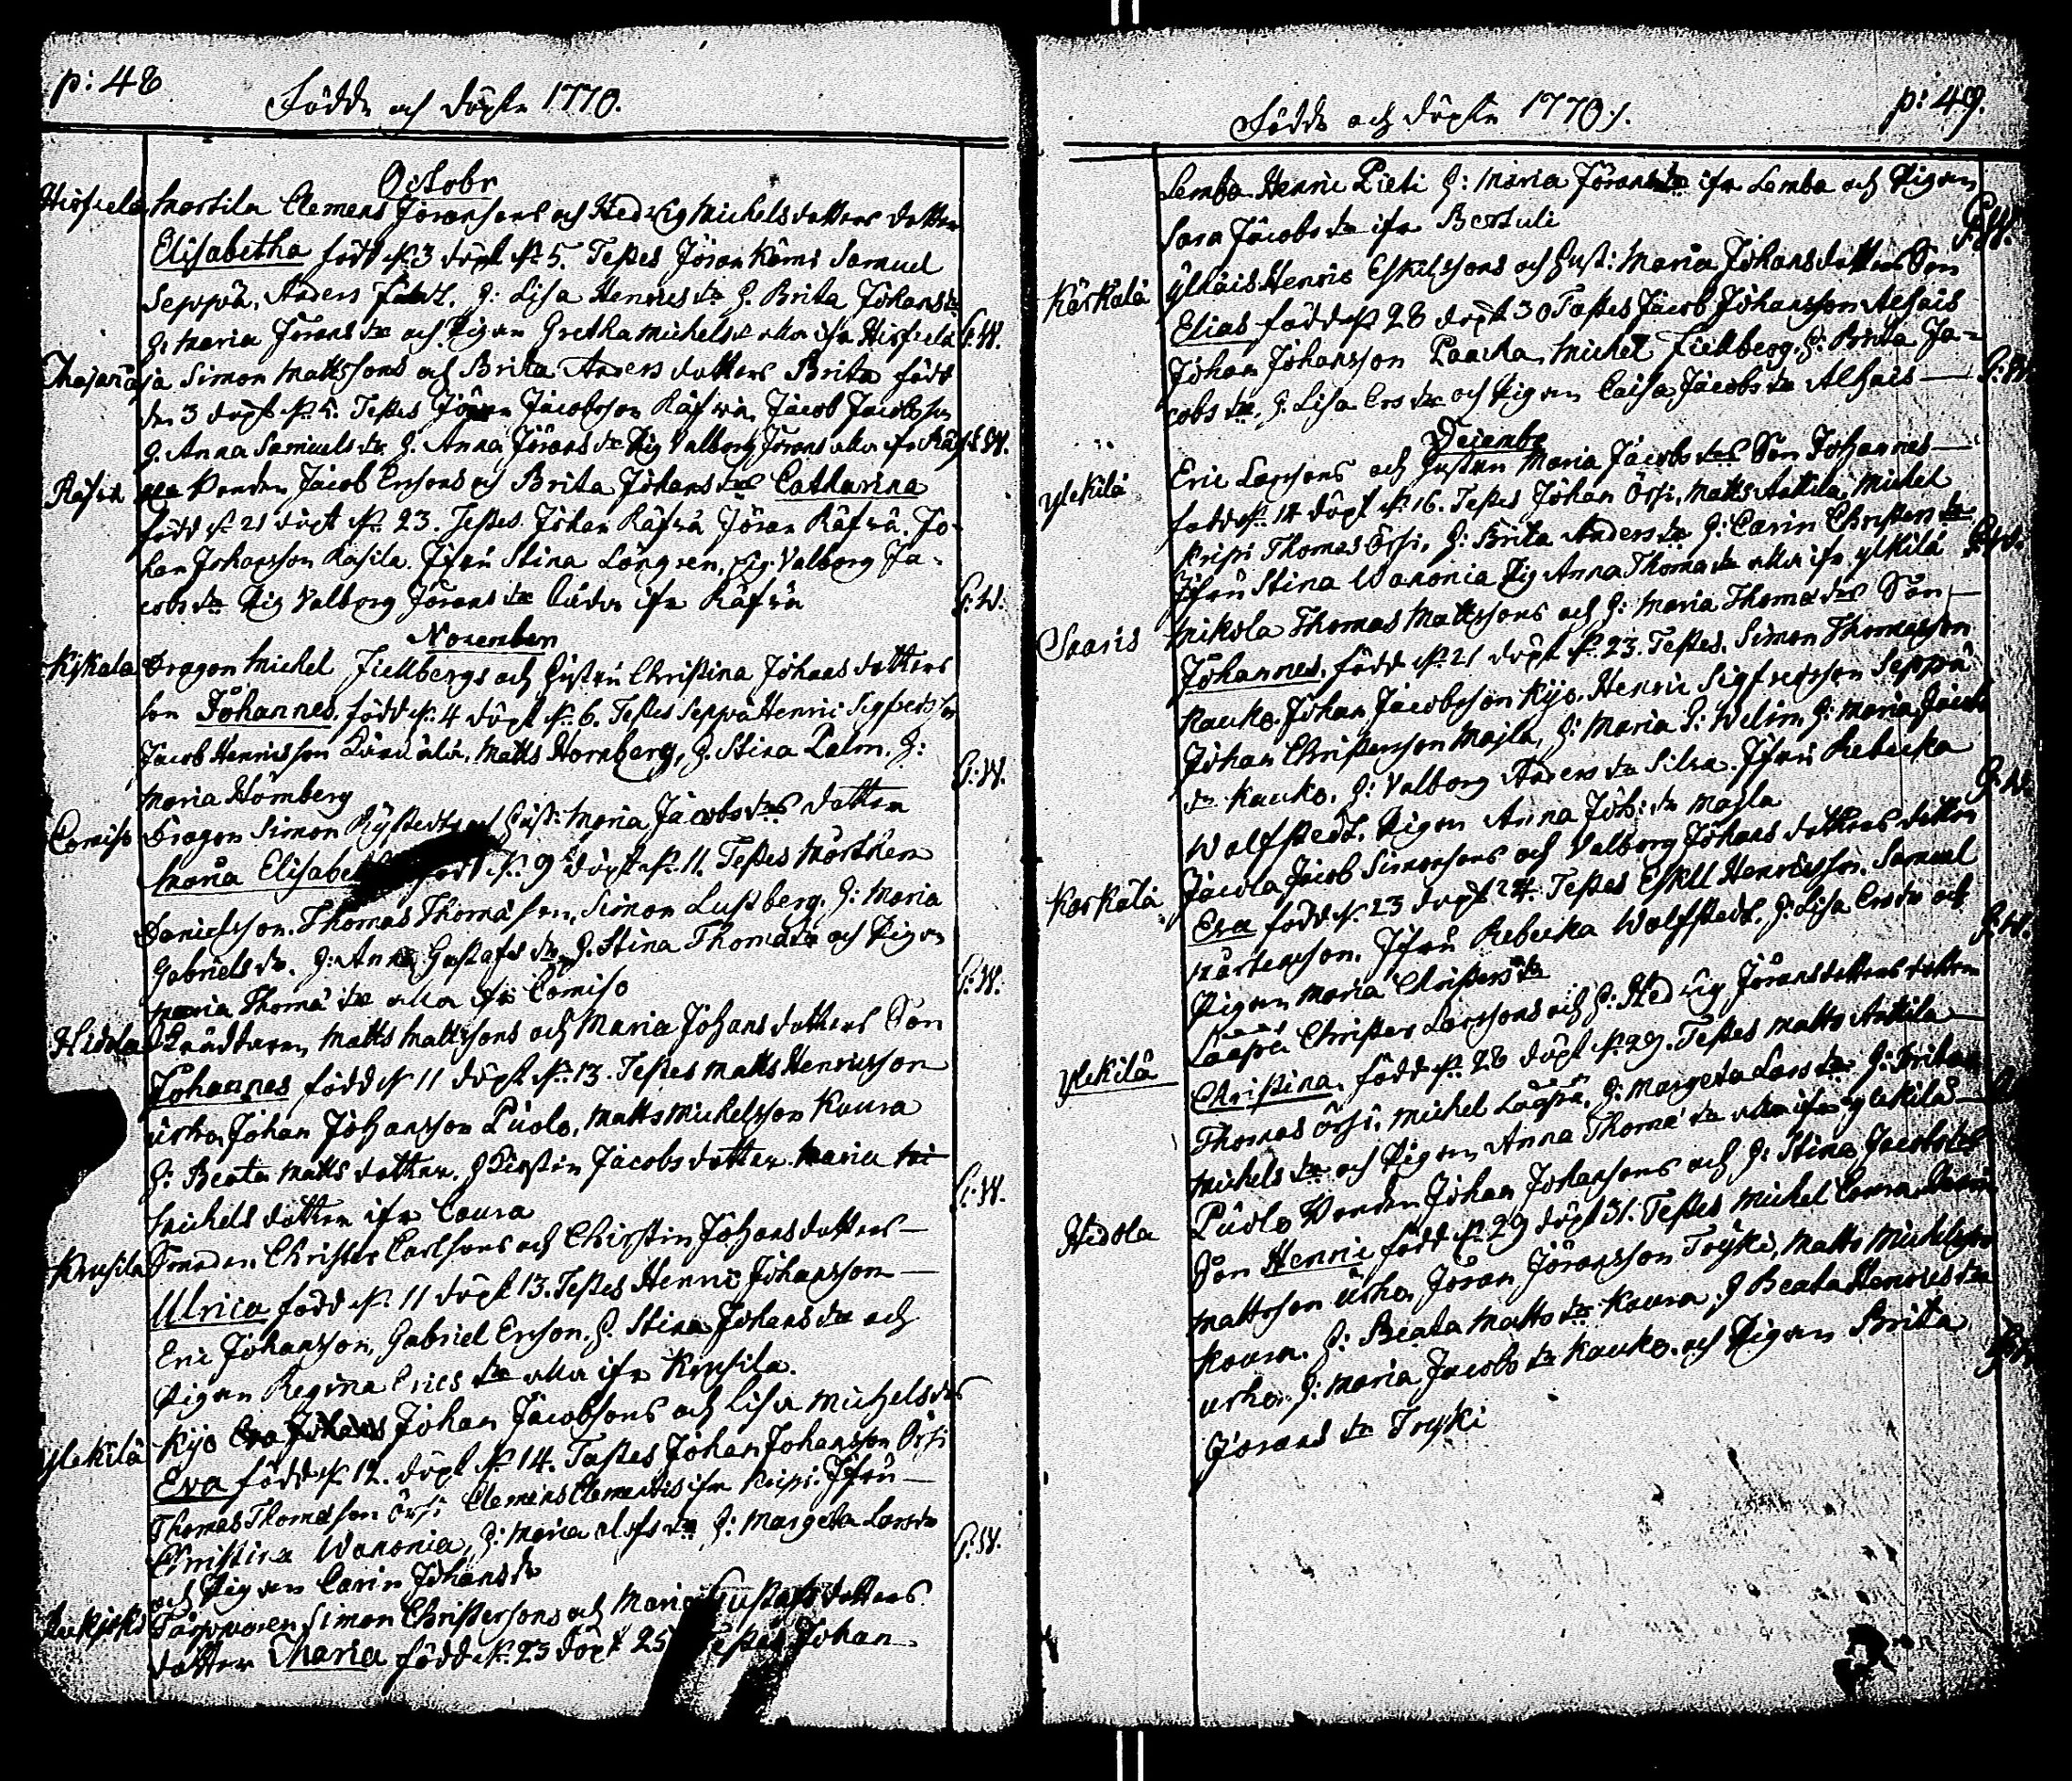 p: 48
Födde och döpte 1770.
Octobr
Hirfiela Martila Clemens Jöransons och Hedvig Michelsdotters dotter
Elisabetha född d. 3 döpt d. 5. Testes Jöran Kämi Samuel
Seppä, Anders H: Lisa Henricsdr H. Brita Johansdr
H: Maria Jöransdr och Pigan Gretha Michelsdr alla ifr Hirfiela G: W.
Simon Mattssons och Brita Andersdotters Brita född
den 3 döpt d. 5. Testes Jöran Jacobsson Räfvä, Jacob Jacobsson
H. Anna Samuelsdr H. Anna Jöransdr Pig Valborg Jörans alla ifr G. W.
Räfvä Bonden Jacob Ersons och Brita Johansdrs Catharina
född d. 21 döpt d. 23. Testes Johan Räfvä Jöran Räfvä. Jo-
han Johansson Kasila. Jfru Stina Löngren, Pig: Valborg Ja-
cobsdr Pig Valborg Jöransdr ifr Räfvä G: W.
November
Kijkala Dragon Michel Fiellbergs och Hustru Christina Johansdotters
son Johannes, född d. 4 döpt d. 6. Testes Seppä Henric Sigfredsson
Jacob Henricsson Matts Hornberg, H. Stina Palm. H:
Maria Hörnberg G: W.
Comiso Dragon Simon och Hust: Maria Jacobsdrs dotter
Maria Elisabet född d. 9 döpt d. 11. Testes Mårthen
Danielsson. Thomas Thomason, Simon Lustberg, H: Maria
Gabrielsdr. H: Anna Gustafsdr, H: Stina Thomædr och Pigan
Maria Thomædr alla ifr Comiso G: W.
Hidola Matts Mattssons och Maria Johansdotters Son
Johannes född d. 11 döpt d. 13. Testes Matts Henricsson
Urho, Johan Johansson Puolo, Matts Michelsson Koura
H: Beata Mattsdotter. H Kirstin Jacobsdotter. Maria Mi-
Michelsdotter ifr Coura G: W.
Krusila Christer Carlsons och Chirstin Johansdotters —
Ulrica född d. 11 döpt 13. Testes Henric Johansson —
Eric Johansson, Gabriel Erson. H. Stina Johansdr och
Pigan Regina Ericsdr alla ifr Krusila.
Ylekilä Kijo Johan Jacobsons och Lisa Michelsdrs
Eva född d. 12. döpt d. 14. Testes Johan Johansson Örsi
Thomas Thomæson Örsi Clemens Clementis ifr Krispi. Jfru —
Christina Wanonia, H: Maria H: Margeta Larsdr
och Pigan Carin Johansdr G: W.
Torpparen Simon Christersons och Maria Gustafsdotters
dotter Maria född d. 23 döpt 25 Testes Johan
p: 49.
Födde och döpte 1770.
Lemba Henric Pieli H: Maria Jöransdr ifr Lemba och Pigan
Sara Jacobsdr ifr Bertuli G: W.
Kärkälä Henric Eskilssons och Hust: Maria Johansdotters Son
Elias född d. 28 döpt 30 Testes Jacob Johansson Alhais
Johan Johansson Paacka, Michel Fiellberg. H: Brita Ja-
cobsdr, H: Lisa Ersdr och Pigan Caisa Jacobsdr Alhais — G: W.
Decembr
Ylekilä Eric Larssons och Hustru Maria Jacobsdrs Son Johannes —
född d. 14 döpt d. 16. Testes Johan Örsi, Matts Anttila, Michel
Krispi Thomas Örsi, H: Brita Andersdr H: Carin Christersdr
Jfru Stina Wanonia Pig Anna Thomædr alla ifr Ylekilä G: W.
Saaris Mikola Thomas Mattssons och H: Maria Thomædrs Son —
Johannes, född d. 21 döpt d. 23. Testes. Simon Thomasson
Kauko. Johan Jacobsson Kijo. Henric Sigfredsson Seppä
Johan Christersson Majla, H: Maria S: Welin, H: Maria Jacobs
dr Kauko. H: Valborg Andersdr Silra. Jfru Rebecka
Wolfstedt. Pigan Anna Joh:dr Majla G: W.
Kärkälä Jacola Jacob Simonsons och Valborg Johansdotters dotter
Eva född d. 23 döpt 24. Testes Eskill Henricsson. Samuel
Mårtensson. Jfru Rebecka Wolfstedt. H: Lisa Ersdr och
Pigan Maria Christersdr G: W.
Ylekilä Laapa Christer Larssons och H: Hedvig Jöransdotters dotter
Christina, född d. 28 döpt d. 29. Testes Matts Anttila —
Thomas Örsi, Michel Laapa, H: Margeta Larsdr H: Brita
Michelsdr och Pigan Anna Thomædr alla ifr Ylekilä —
Hidola Puolo Bonden Johan Johansons och H: Stina Jacobsdrs
Son Henric född d. 29 döpt 31. Testes Michel Coura,
Mattsson Urho, Jöran Jöransson Tryki, Matts Michelsson
Koura. H: Beata Mattsdr Koura. H Beata Henricsdr
Urho. H: Maria Jacobsdr Kauko. och Pigan Brita
Joransdr Tryki